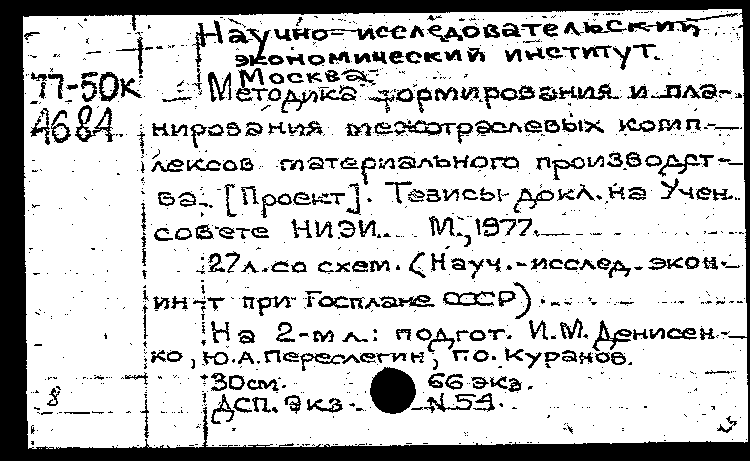 Научно-исследовательский
экономический институт.
Москва.
77-50к Методика формирования и пла-
А684 нирования межотраслевых комп-
лексов материального производст-
ва. [Проект]. Тезисы докл. на Учен.
совете НИЭИ. М., 1977.
27л. со схем. (Науч.-исслед. экон.
ин-т при Госплане СССР).
На 2-м л.: подгот. И.М. Денисен-
ко, Ю.А. Переслегин, Куранов.
30см. 66 экз.
ДСП. Экз. N 54.
8